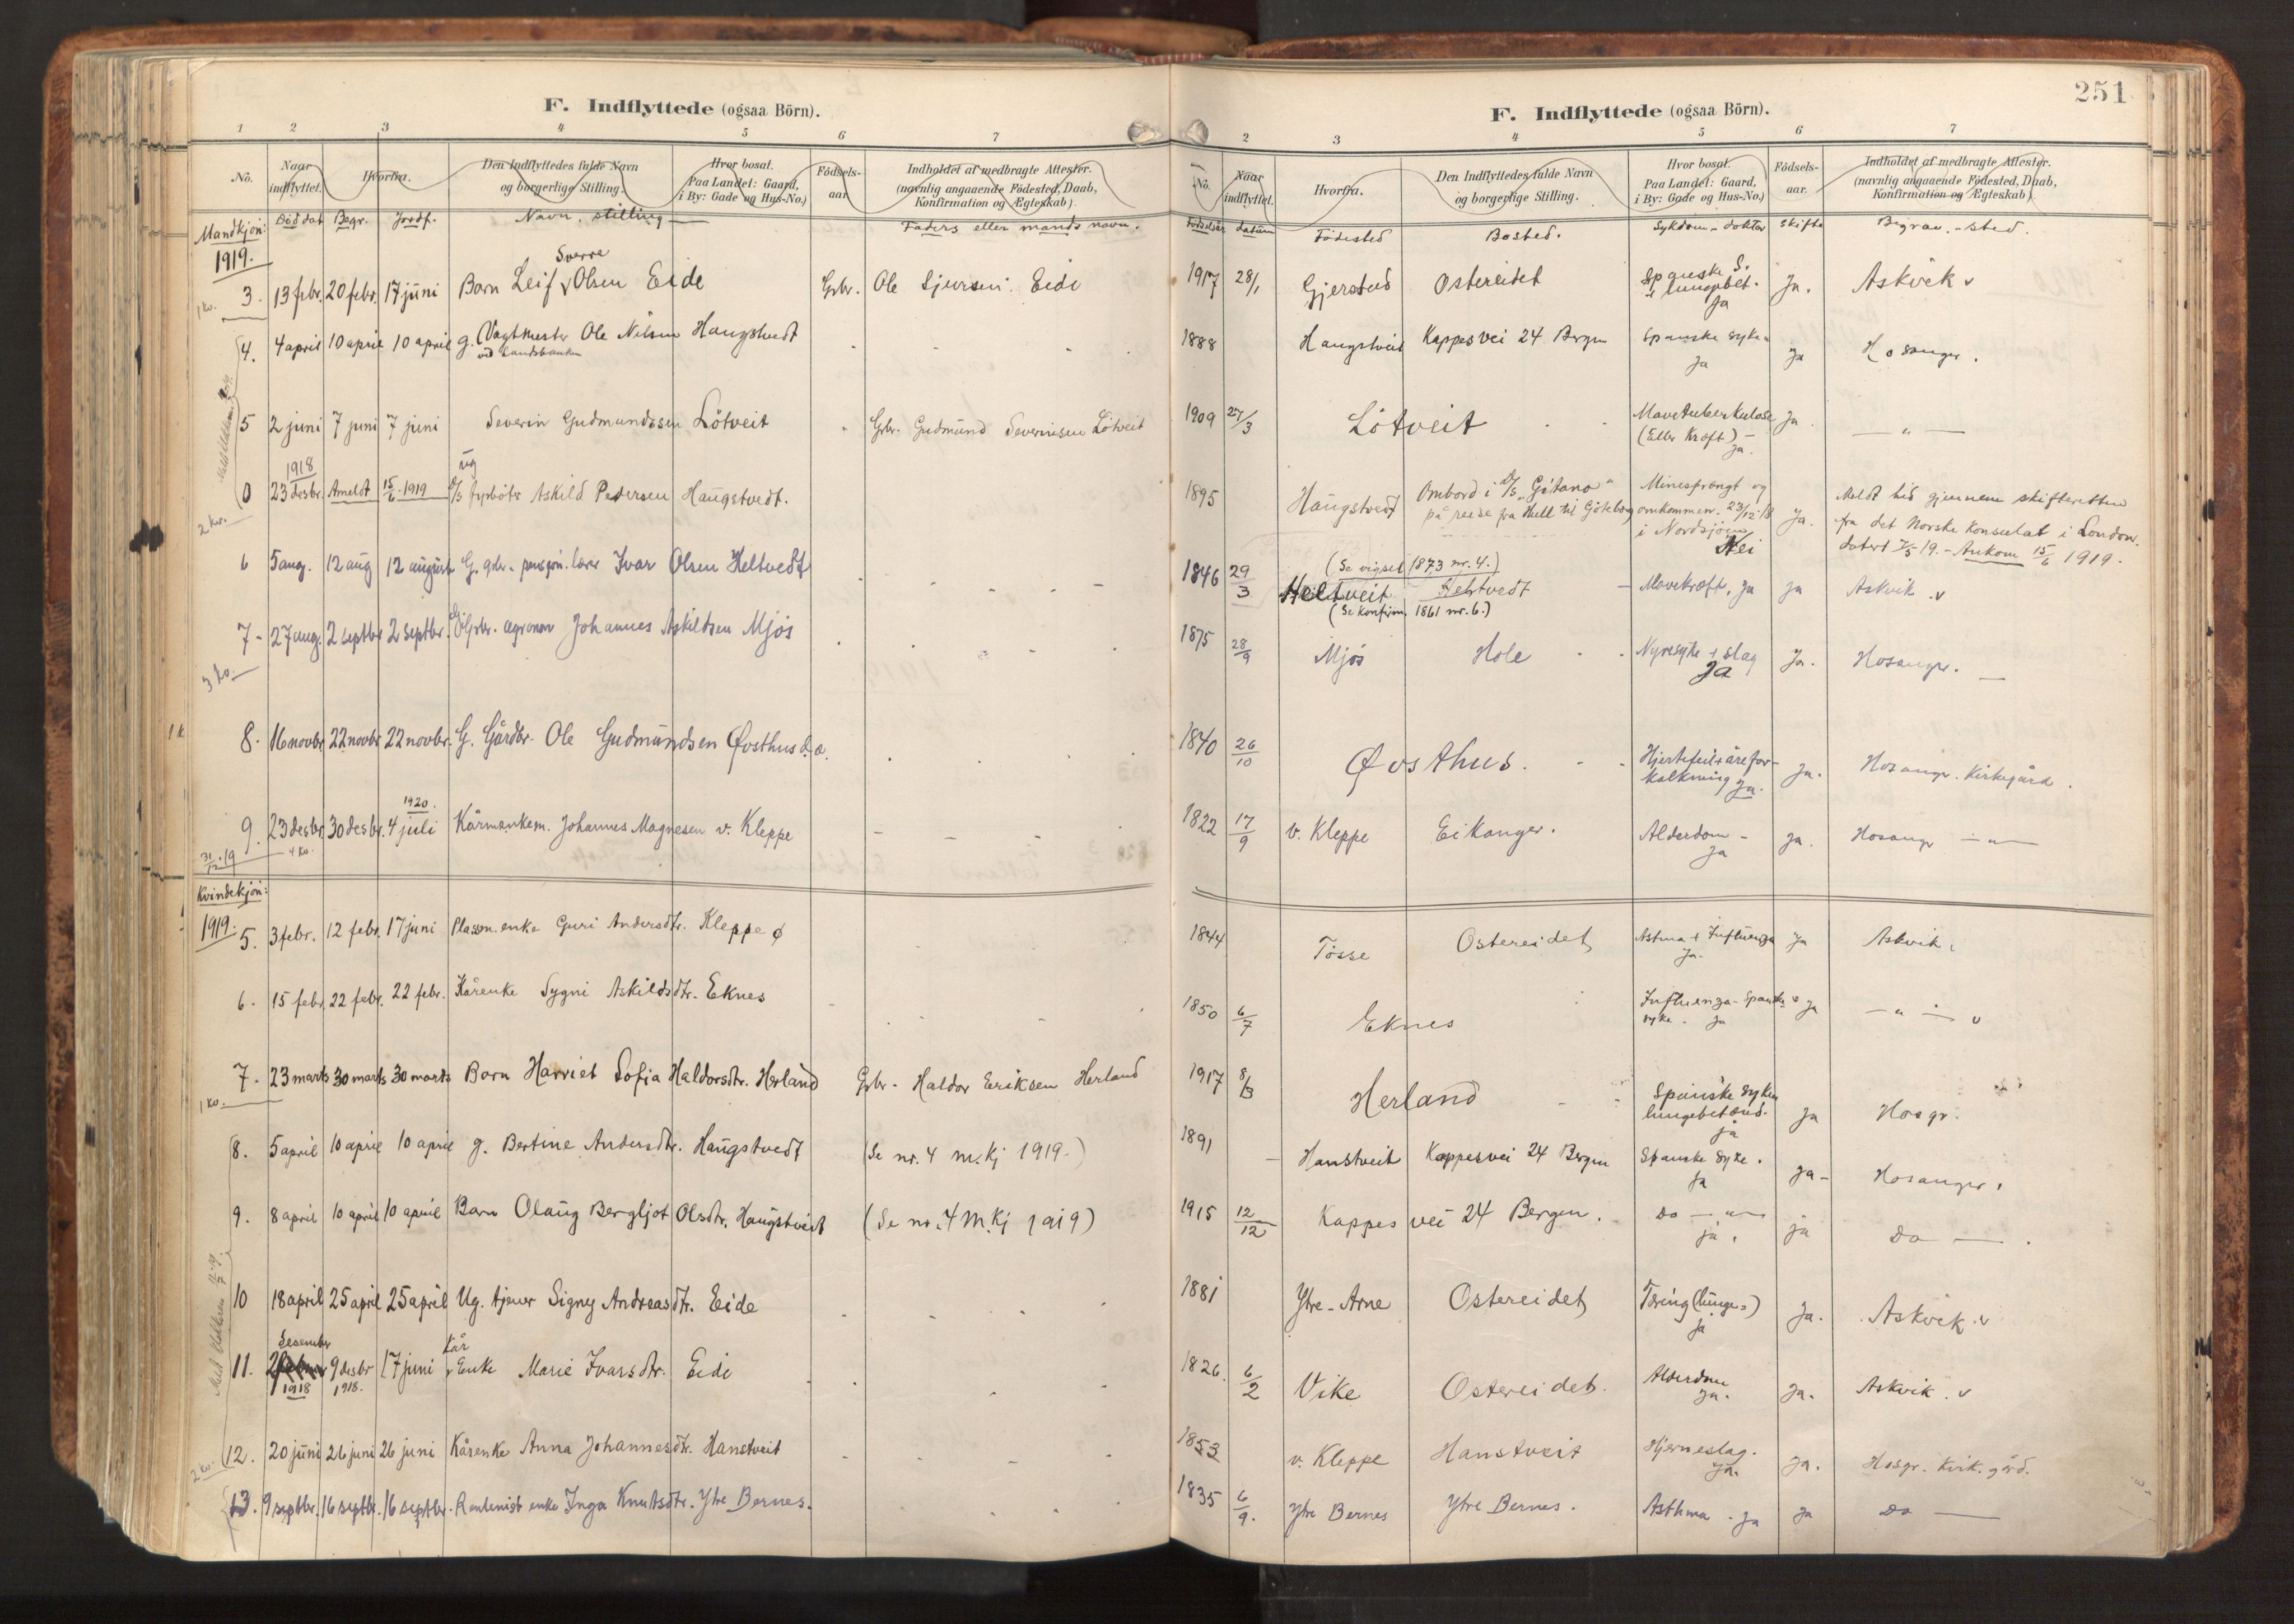 F. Indflyttede (ogsaa Börn).
1 2 3 4 5 6 7
No.
Naar indflyttet.
Hvorfra.
Den Indflyttedes fulde Navn og borgerlige Stilling.
Hvor bosat. Paa Landet: Gaard, i By: Gade og Hus-No.)
Födsels-aar.
Indholdet af medbragte Attester. (navnlig angaaende Födested, Daab, Konfirmation og Ægteskab)
Mandkjön: Död dat Begr. Jordf. Navn. stilling Faders eller mands navn.
1919.
Sverre
3. 13 febr. 20 febr. 17 juni Barn Leif Olsen Eide Gbr. Ole Sjursen Eide
1 kv.
4. 4 april 10 april 10 april g. Vagtmester Ole Nilsen Haugstvedt
ved Landsbanken
5 2 juni 7 juni 7 juni Severin Gudmundssen Lötveit Gbr. Gudmund Severinsen Lötveit
1918 ug
0 23 desbr. Anmeldt 15/6 1919 D/S fyrböter Askild Pedersen Haugstvedt.
2 kv.
6 5 aug. 12 aug 12 august G. gbr. pensjon. lærer Ivar Olsen Heltvedt
7 - 27 aug. 2 septbr 2 septbr. Gbr. agronom Johannes Askildsen Mjös
3 kv.
8. 16 novbr 22 novbr 22 novbr. G. Gårdbr. Ole Gudmundsen Øvsthus d.æ.
1920.
9. 23 desbr 30 desbr. 4 juli Kårmankem. Johannes Magnesen v. Kleppe
31/12-19 4 kv.
Kvindekjön:
1919. 5. 3 febr. 12 febr. 17 juni Plassm. enke Guri Andersdtr. Kleppe ø
6. 15 febr. 22 febr. 22 febr. Kårenke Sygni Askildsdtr. Eknes
7. 23 marts 30 marts 30 marts Barn Harriet Sofia Haldorsdtr. Herland Gbr. Haldor Eriksen Herland
1 kv.
8. 5 april 10 april 10 april g. Bertine Andersdtr. Haugstvedt (Se nr. 4 m.kj 1919.)
9. 8 april 10 april 10 april Barn Olaug Bergljot Olsdtr. Haugstveit (Se nr. 4 M.Kj 1919)
10 18 april 25 april 25 april Ug. tjener Signy Andreasdtr. Eide
Desember Kår
11. 2 9 desbr 17 juni Enke Marie Ivarsdtr. Eide
1918 1918.
12. 20 juni 26 juni 26 juni Kårenke Anna Johannesdtr. Hanstveit
2 kv.
13. 9 septbr. 16 septbr. 16 septbr. Rentenist enke Inga Knutsdtr. Ytre Bernes.
251
F. Indflyttede (ogsaa Börn).
2 3 4 5 6 7
No.
Naar indflyttet.
Hvorfra.
Den Indflyttedes fulde Navn og borgerlige Stilling.
Hvor bosat. Paa Landet: Gaard, i By: Gade og Hus-No.)
Födsels-aar.
Indholdet af medbragte Attester. (navnlig angaaende Födested, Daab, Konfirmation og Ægteskab)
Födselsår datum Födested Bosted. Sykdom - doktor skifte Begrav. - sted.
1917 28/1 Gjerstad Ostereidet Spanske S. + lungebet. Ja Ja. Askvik v
1888 Haugstveit Kappes vei 24 Bergen Spanske syke Ja Ja Hosanger.
1909 27/3 Lötveit Mavetuberkulose (Eller Kræft) - Ja. Ja. - " -
1895 Haugstvedt Ombord i D/S "Gitano" på reise fra Hull til Göteborg Minesprængt og omkommen. 23/12-18 i Nordsjöen Nei Ja. Meldt hid gjennem skifteretten
fra det Norske Konsulat i London.
datert 7/5 19. - Ankom 15/6 1919.
(Se vigsel 1873 nr. 4.)
1846 29/3 Heltveit Heltvedt - Mavekræft. Ja ja Askvik. v
(Se konfirm. 1861 nr. 6.)
1875 28/9 Mjös Hole Nyresyke + slag Ja Ja. Hosanger.
1840 26/10 Øvsthus. Hjertefeil + åreforkalkning Ja. Ja. Hosanger Kirkegård.
1822 17/9 v. Kleppe Eikanger. Alderdom - Ja ja. Hosangr - " -
1844 Tösse Ostereidet Astma + Influenza Ja. ja Askvik.
1850 6/7 Eknes Influenza - Spanske syke. Ja ja - " - v
1917 8/3 Herland Spanske syken lungebetænd. ja ja Hosgr.
1891 - Hanstveit Kappesvei 24 Bergen Spanske Syke. Ja ja - Hosanger.
1915 12/12 Kappes vei 24 Bergen. Do - " - ja. ja Do -.
1881 Ytre-Arne Ostereidet Tæring (lunge=) Ja Ja. Askvik. v
1826. 6/2 Vike Ostereidet. Alderdom Ja. Ja. Askvik. v
1853 v. Kleppe Hanstveit Hjerneslag. Ja. Ja. Hosgr. Kirk. gård.
1835 6/9. Ytre Bernes Ytre Bernes. Asthma. Ja Ja Do -